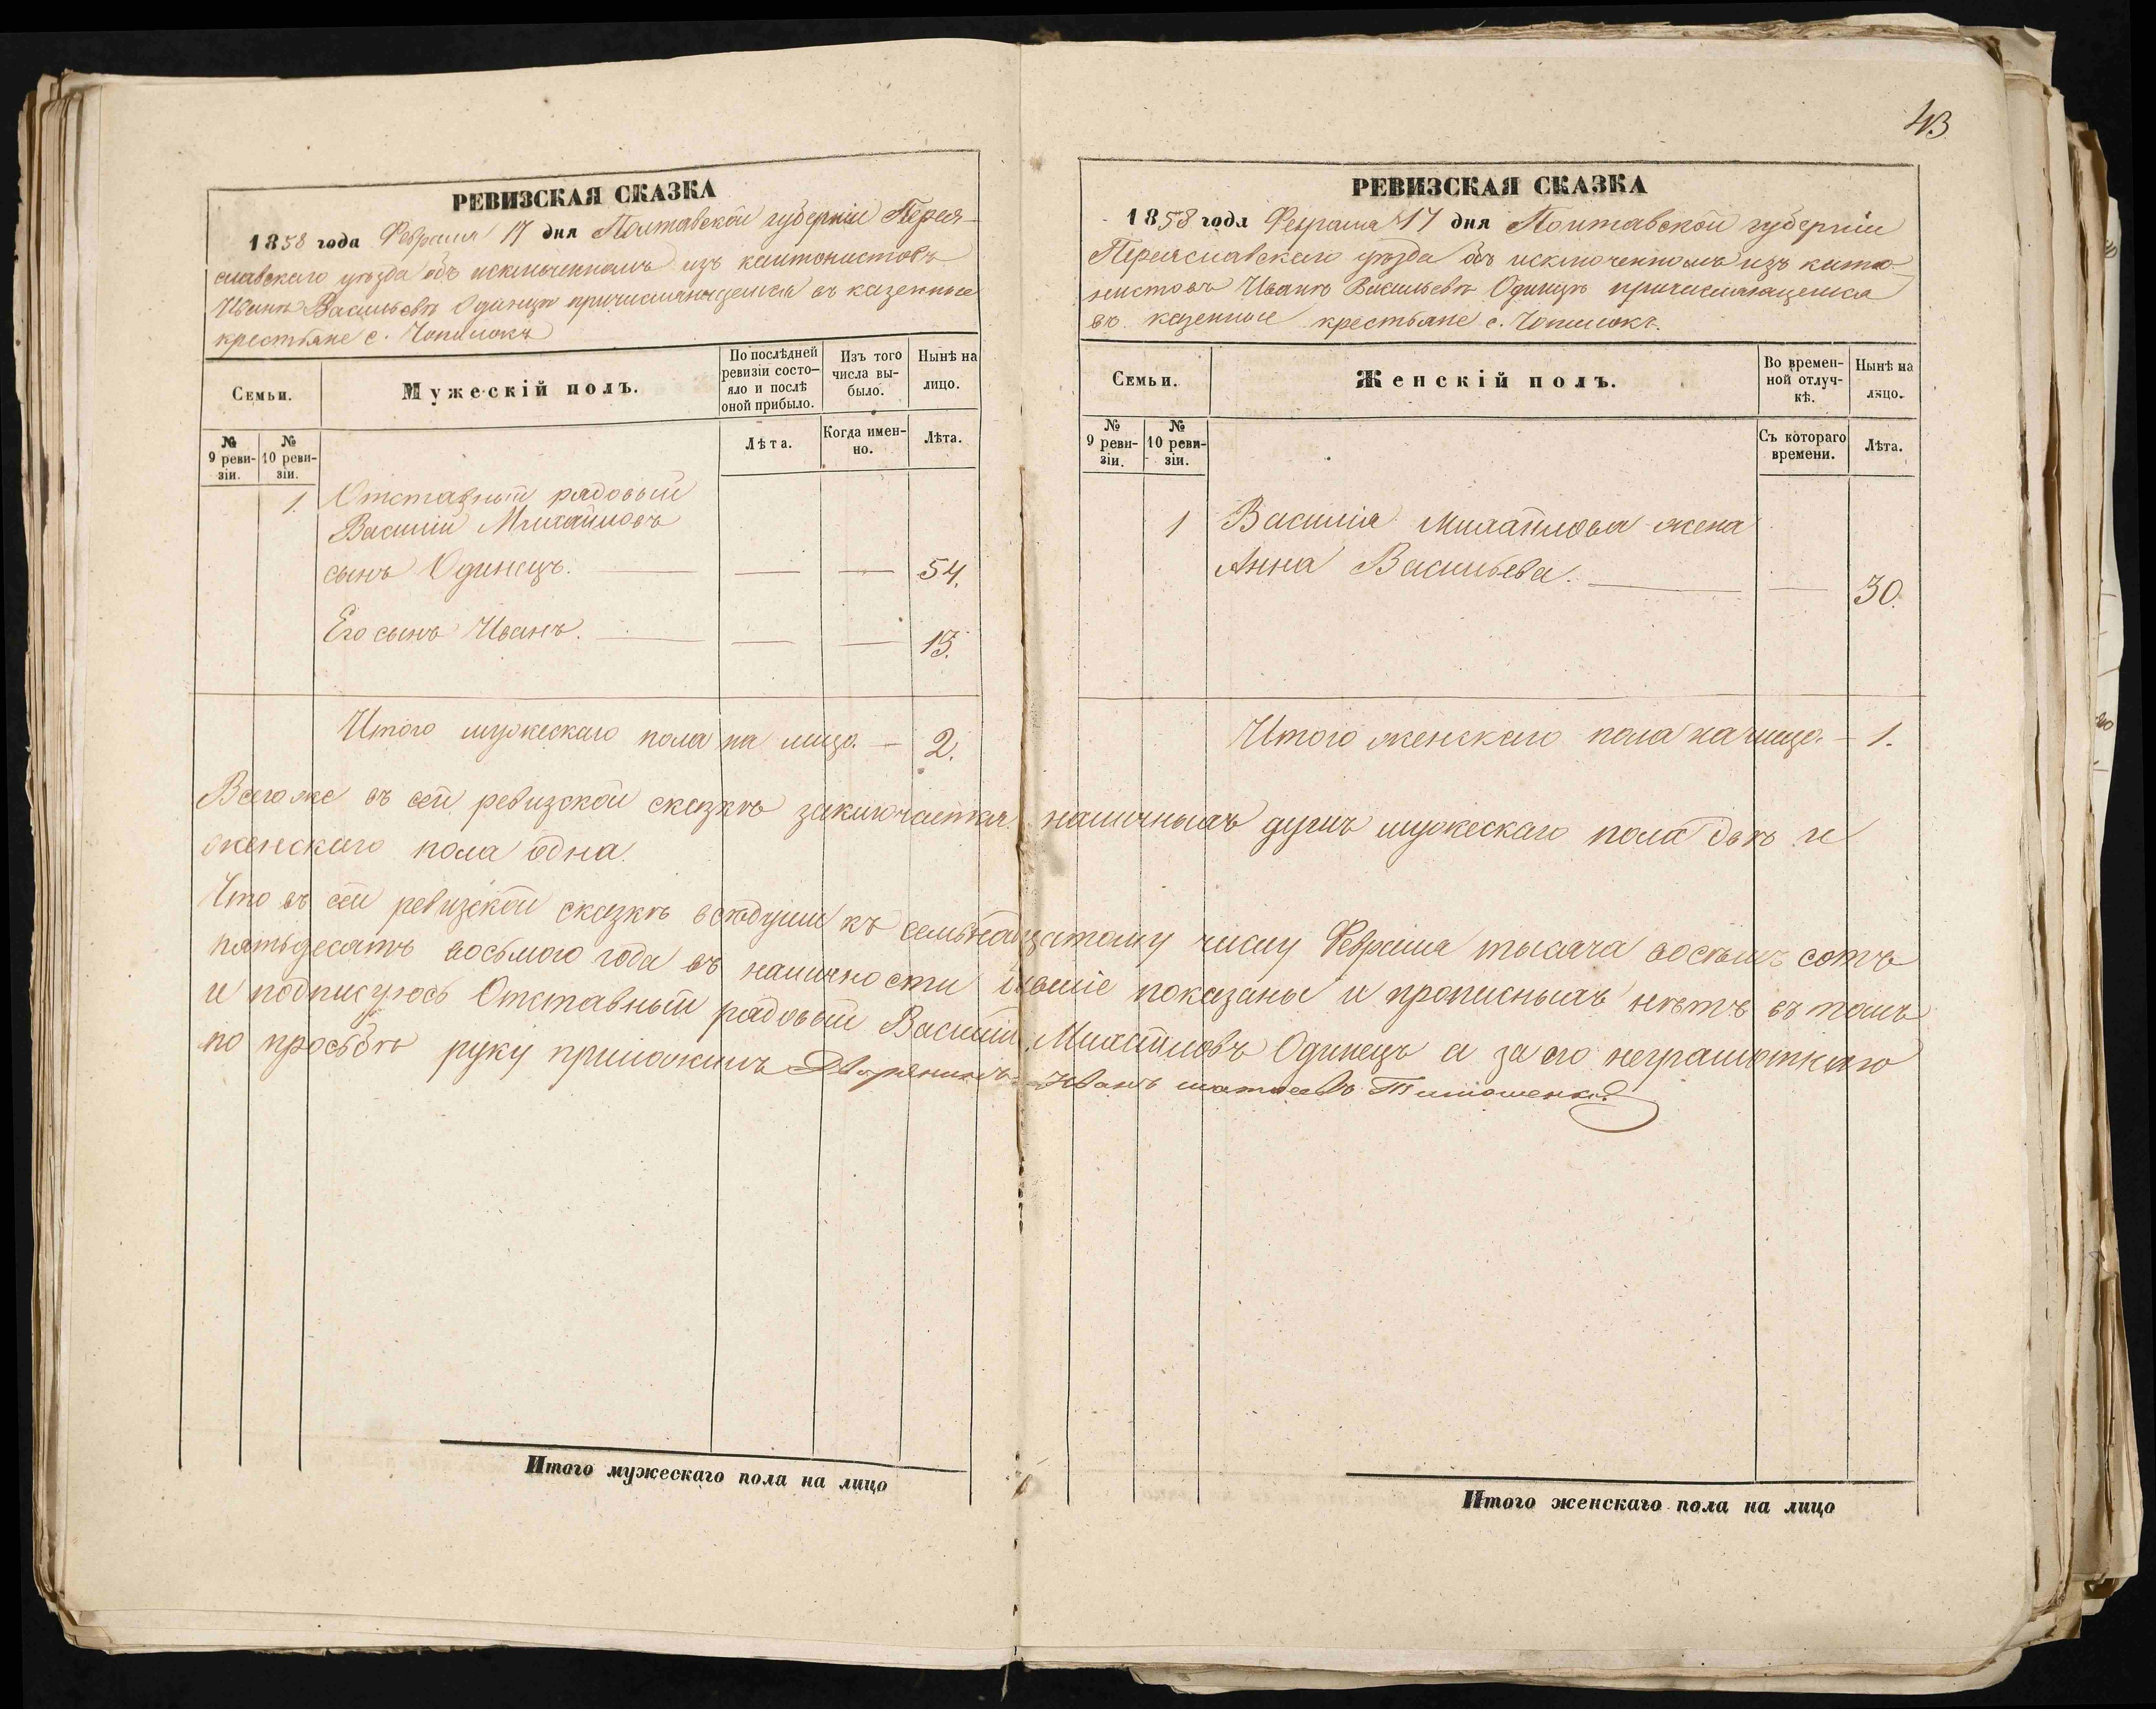 43
РЕВИЗСКАЯ СКАЗКА
1858 года Февраля 17 дня Полтавской губерніи Перея-
славскаго уѣзда объ исключенномъ изъ кантонистовъ
Иванѣ Васильевѣ Одинцѣ причисляющемся въ казенные
крестьяне с. Чопилокъ
Семьи.
Мужескій полъ.
По послѣдней ревизіи состо-
яло и послѣ оной прибыло.
Изъ того числа вы-
было.
Нынѣ на лицо.
№ 9 реви-
зіи.
№ 10 реви-
зіи.
Лѣта.
Когда имен-
но.
Лѣта.
1. Отставный рядовый
Василій Михайловъ
сынъ Одинецъ. — — — 54.
Его сынъ Иванъ. — — — 13.
Итого мужескаго пола на лицо. — 2.
РЕВИЗСКАЯ СКАЗКА
1858 года Февраля 17 дня Полтавской губерніи
Переяславскаго уѣзда объ исключенномъ изъ канто-
нистовъ Иванѣ Васильевѣ Одинцѣ причисляющемся
въ казенные крестьяне с. Чопилокъ.
Семьи.
Женскій полъ.
Во времен-
ной отлуч-
кѣ.
Нынѣ на лицо.
№ 9 реви-
зіи.
№ 10 реви-
зіи.
Съ котораго времени.
Лѣта.
1 Василія Михайлова жена
Анна Васильева. — — 30.
Итого женскаго пола на лицо. — 1.
Всего же въ сей ревизской сказкѣ заключается наличныхъ душъ мужескаго пола двѣ и
женскаго пола одна.
Что въ сей ревизской сказкѣ всѣ души къ семьнадцатому числу Февраля тысяча восемь сотъ
пятьдесятъ восьмого года въ наличности бывшіе показаны и прописныхъ нѣтъ въ томъ
и подписуюсь Отставный рядовый Василій Михайловъ Одинецъ а за его неграмотнаго
по просьбѣ руку приложилъ Дворянинъ Иванъ Матвеевъ Тимошенко
Итого мужескаго пола на лицо
Итого женскаго пола на лицо